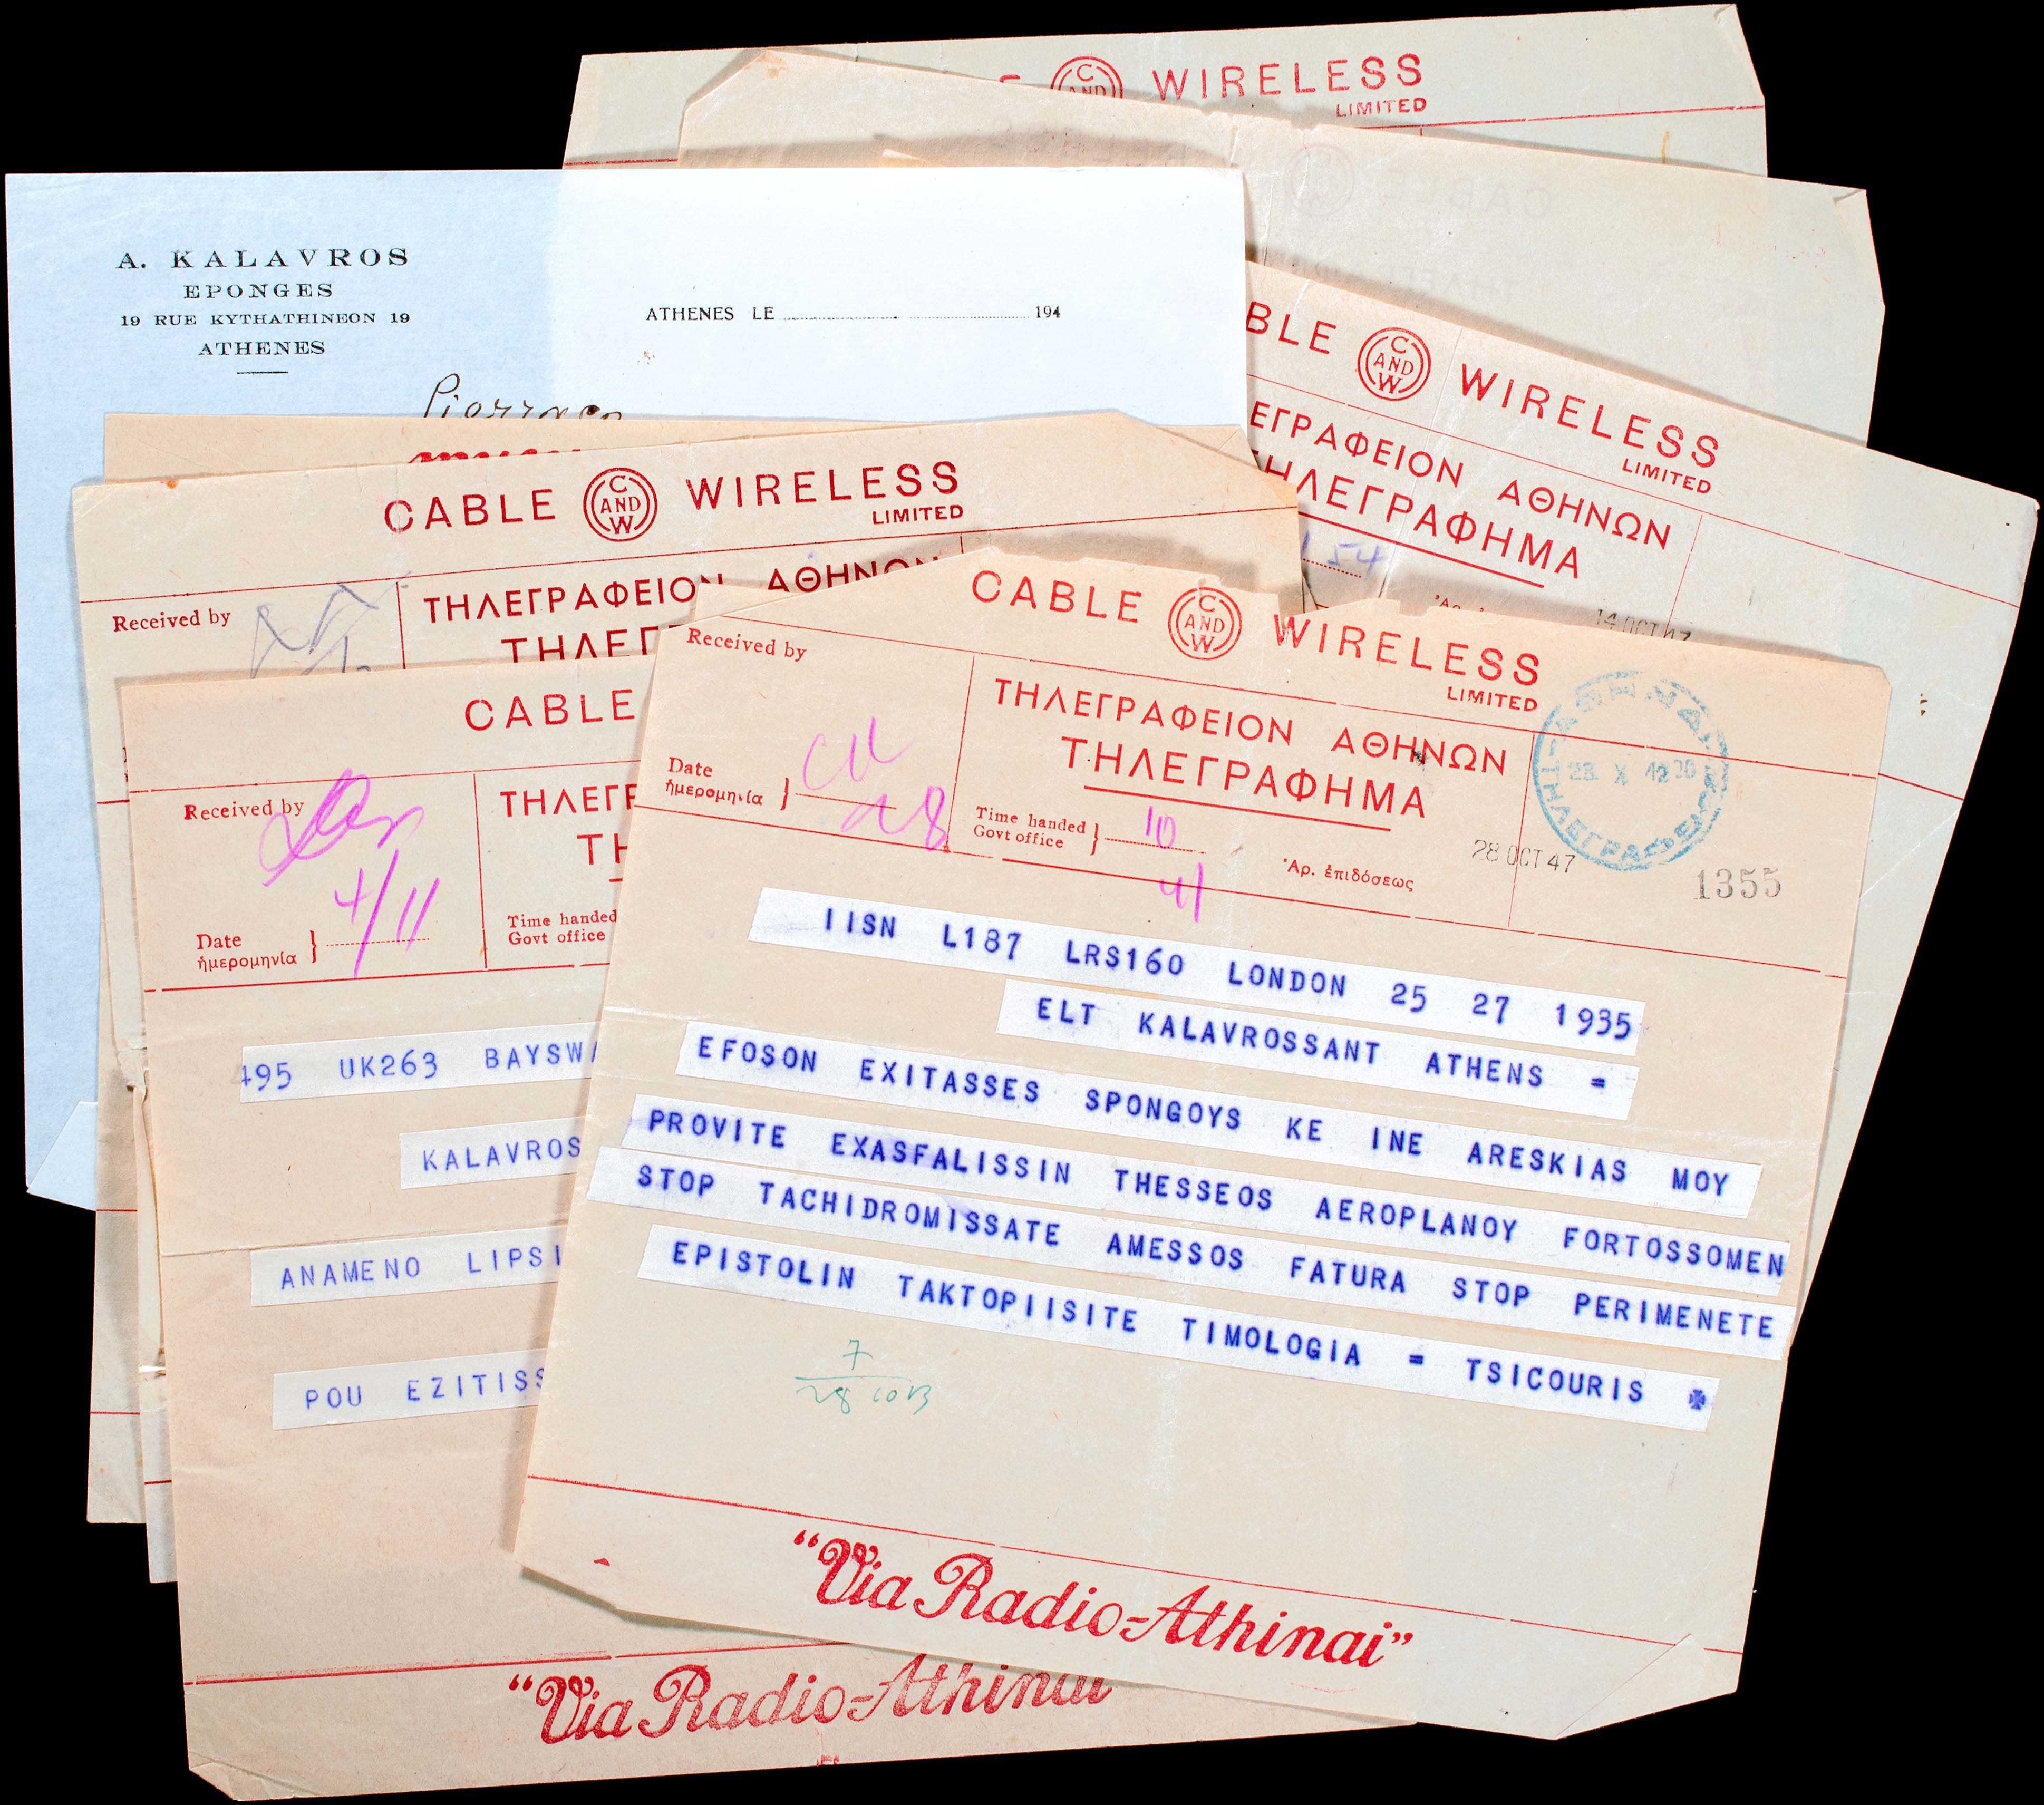 WIRELESS
LIMITED
A. KALAVROS
EPONGES
19 RUE KYTHATHINEON 19
ATHENES
ATHENES LE 194
BLE C AND W WIRELESS
LIMITED
ΕΓΡΑΦΕΙΟΝ ΑΘΗΝΩΝ
ΗΛΕΓΡΑΦΗΜΑ
54
14 OCT 47
CABLE C AND W WIRELESS
LIMITED
Received by
ΤΗΛΕΓΡΑΦΕΙΟΝ ΑΘΗΝΩΝ
ΤΗΛΕΓ
CABLE
Received by
4/11
Date
ἡμερομηνία
ΤΗΛΕΓΡ
ΤΗ
Time handed
Govt office
495 UK263 BAYSWA
KALAVROS
ANAMENO LIPSI
POU EZITISS
"Via Radio-Athinai
CABLE C AND W WIRELESS
LIMITED
Received by
ΤΗΛΕΓΡΑΦΕΙΟΝ ΑΘΗΝΩΝ
ΤΗΛΕΓΡΑΦΗΜΑ
Date
ἡμερομηνία
28
Time handed
Govt office
10
41
Ἀρ. ἐπιδόσεως
28 OCT 47
1355
IISN L187 LRS160 LONDON 25 27 1935
ELT KALAVROSSANT ATHENS =
EFOSON EXITASSES SPONGOYS KE INE ARESKIAS MOY
PROVITE EXASFALISSIN THESSEOS AEROPLANOY FORTOSSOMEN
STOP TACHIDROMISSATE AMESSOS FATURA STOP PERIMENETE
EPISTOLIN TAKTOPIISITE TIMOLOGIA = TSICOURIS
7
"Via Radio-Athinai"